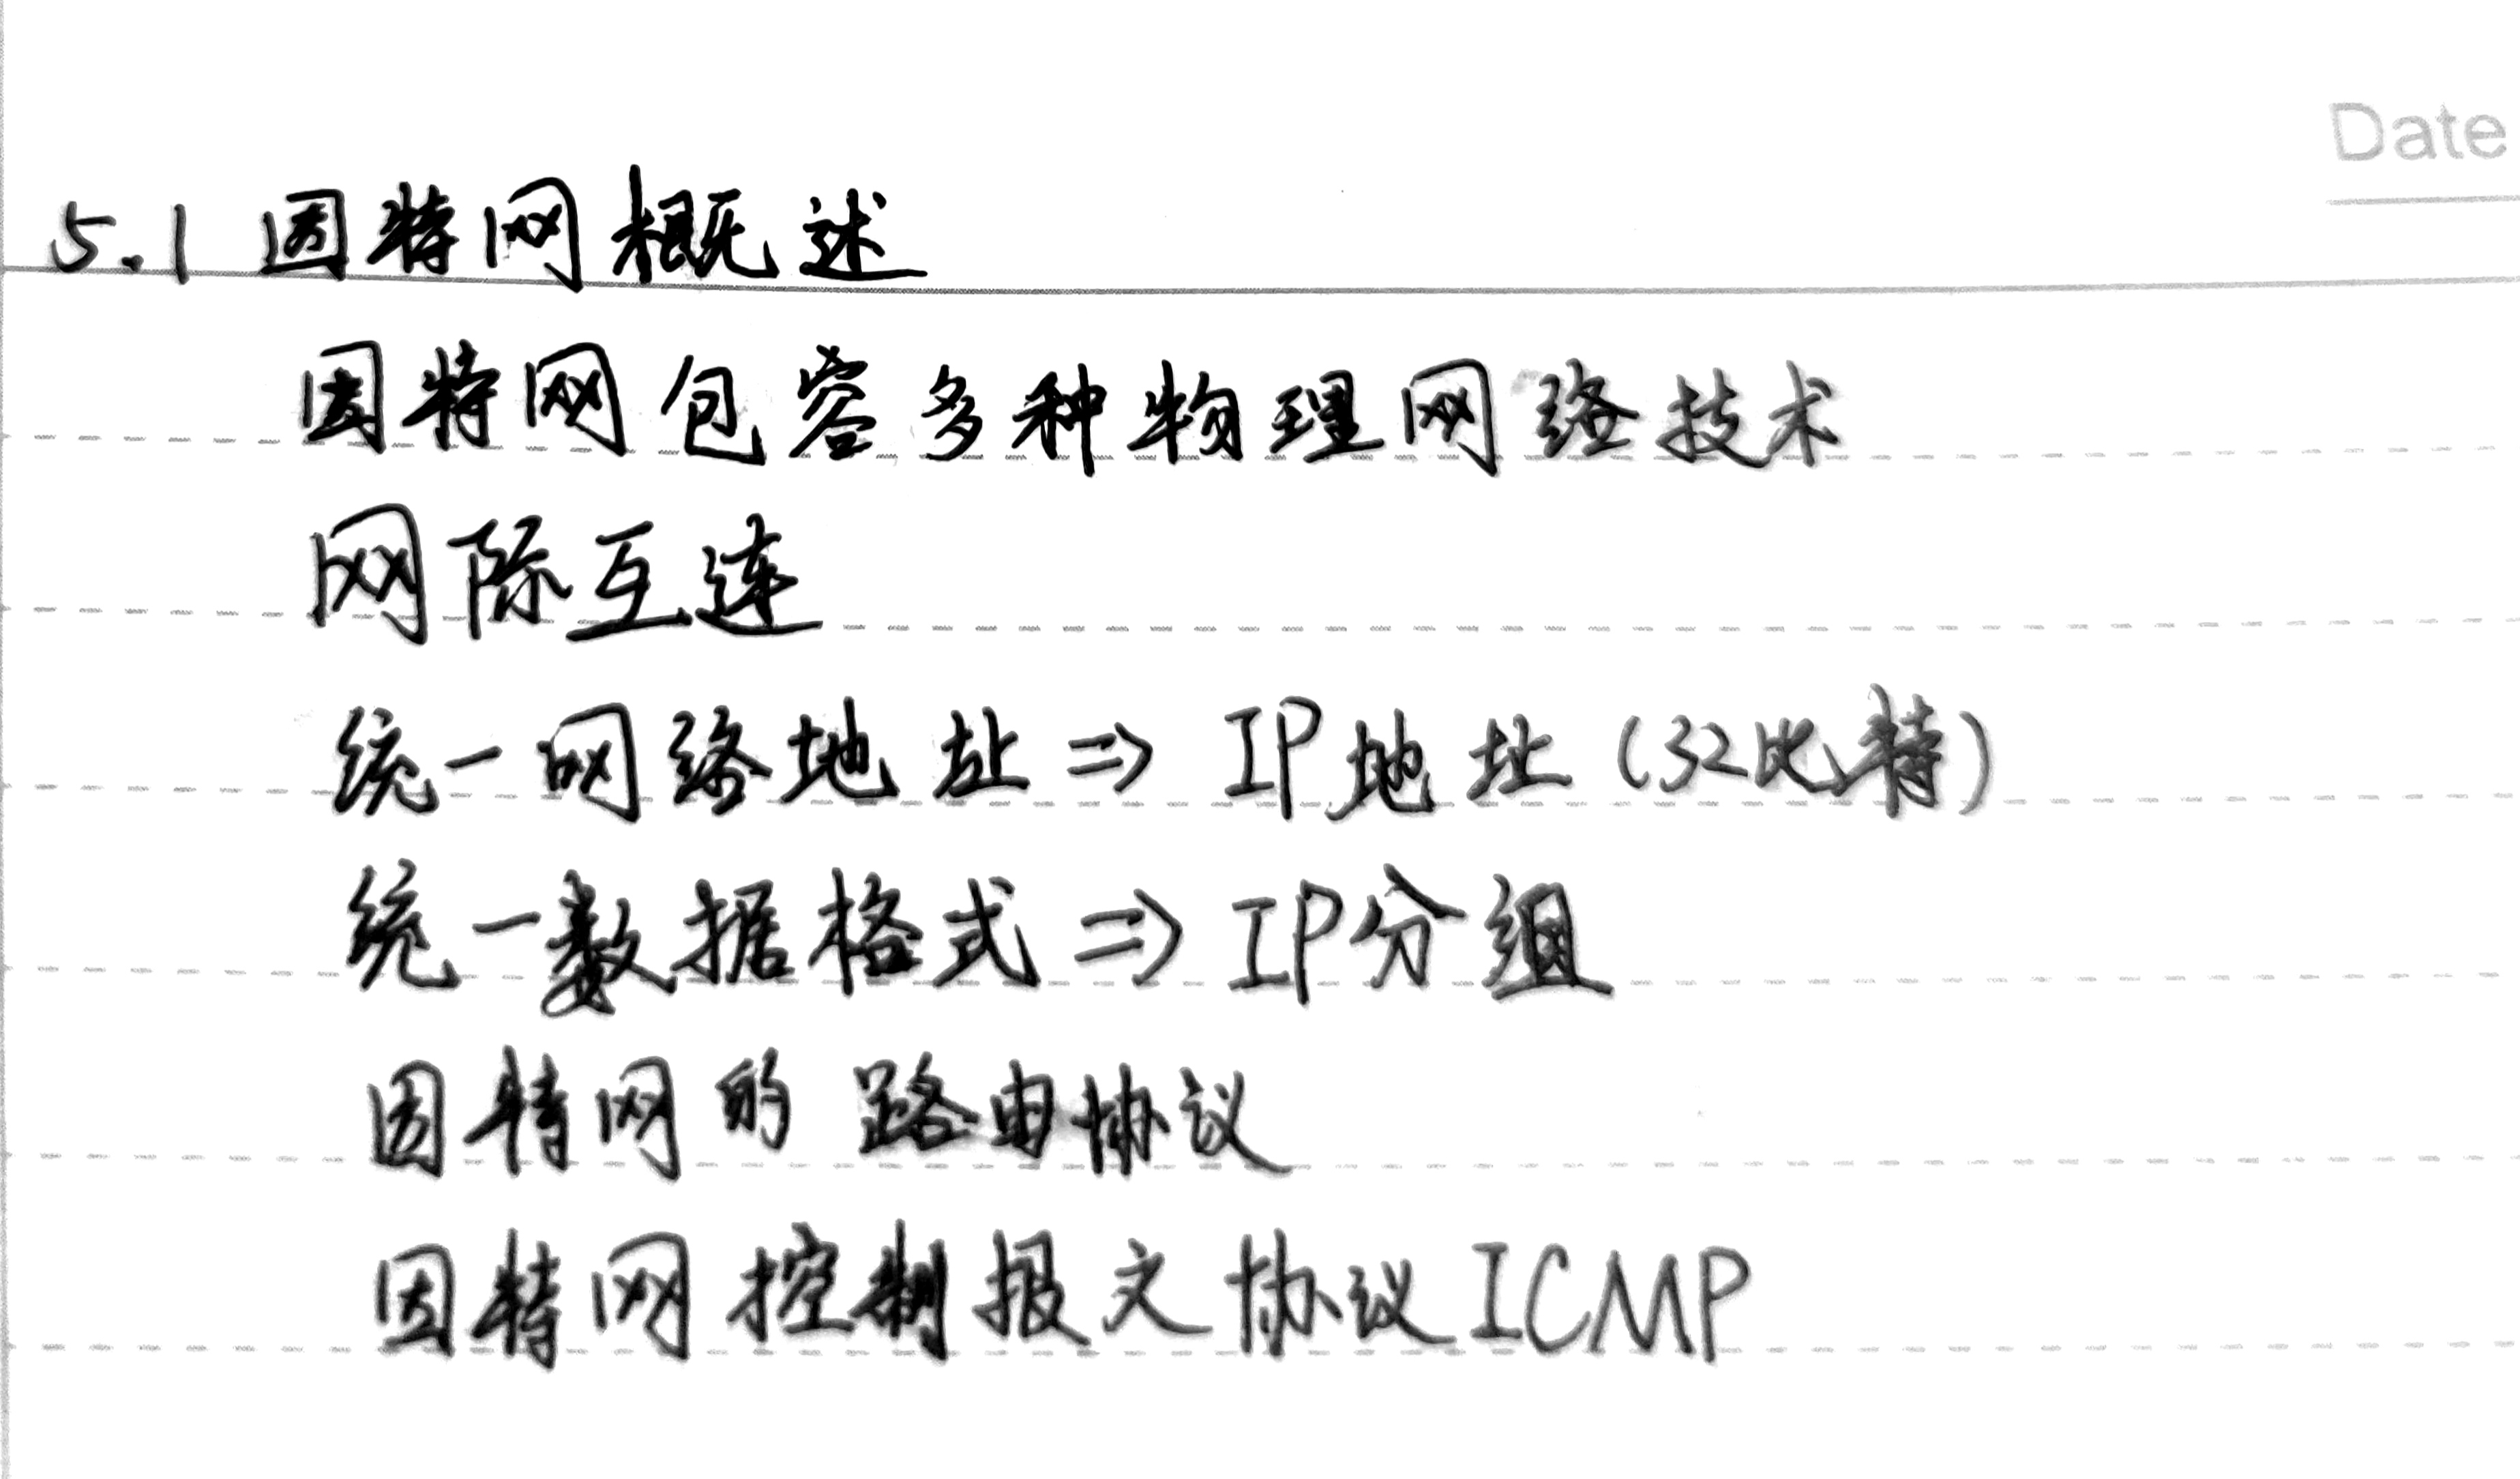 Date
5.1 因特网概述
因特网包容多种物理网络技术
网际互连
统一网络地址 ⇒ IP地址 (32比特)
统一数据格式 ⇒ IP分组
因特网的路由协议
因特网控制报文协议ICMP